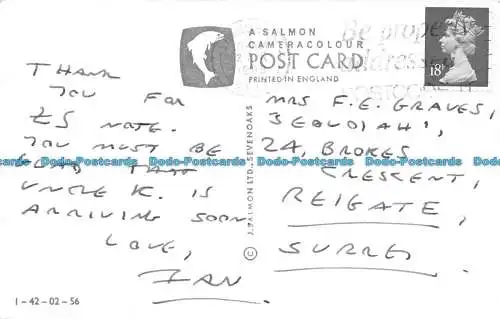 A SALMON
CAMERACOLOUR
POST CARD
PRINTED IN ENGLAND
Be proper
addressed
POSTCODE IT
18P
THANK
YOU FOR
£5 NOTE.
YOU MUST BE
GLAD THAT
UNCLE K. IS
ARRIVING SOON
LOVE,
IAN.
1-42-02-56
J. SALMON LTD., SEVENOAKS
©
MRS F.E. GRAVES,
'SEQUOIAH',
24, BROKES
CRESCENT,
REIGATE,
SURREY
Dodo-Postcards Dodo-Postcards Dodo-Postcards Dodo-Postcards Dodo-Postcards Dodo-Postcards